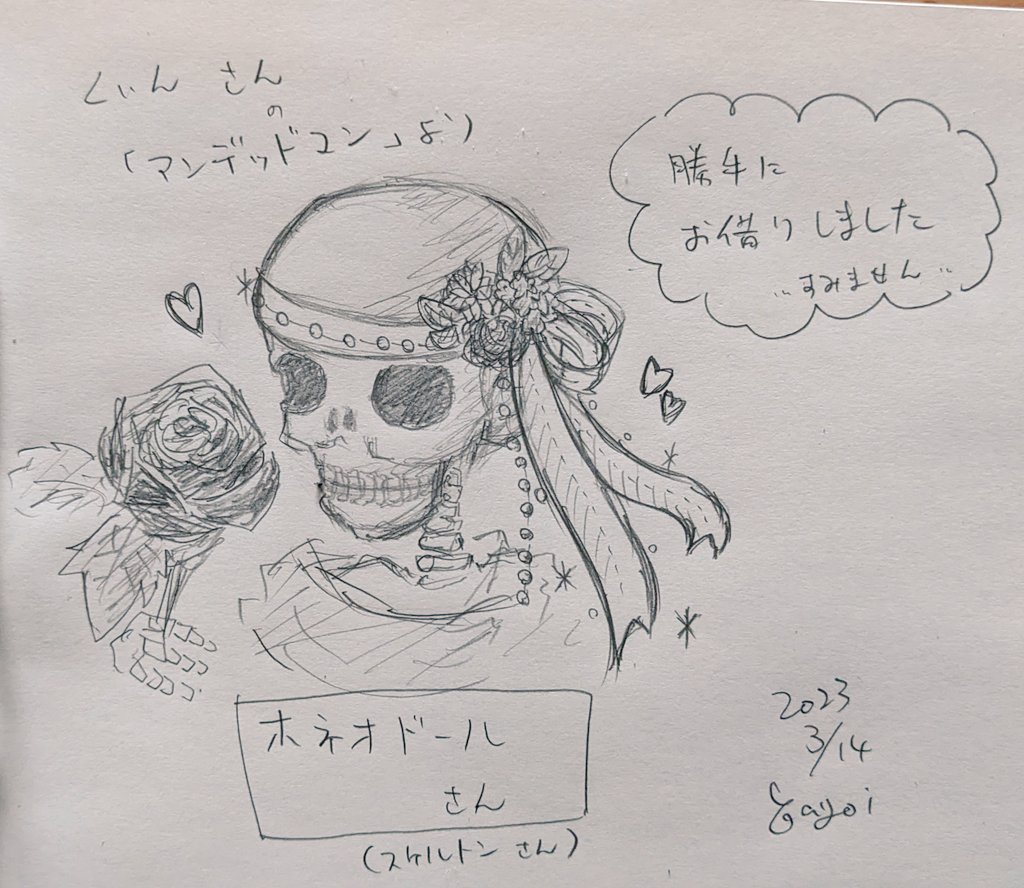 くぃん さん
の
「マンデッドコン」より
勝手に
お借りしました
…すみません…
ホネオドール
さん
(スケルトン さん)
2023
3/14
Yayoi